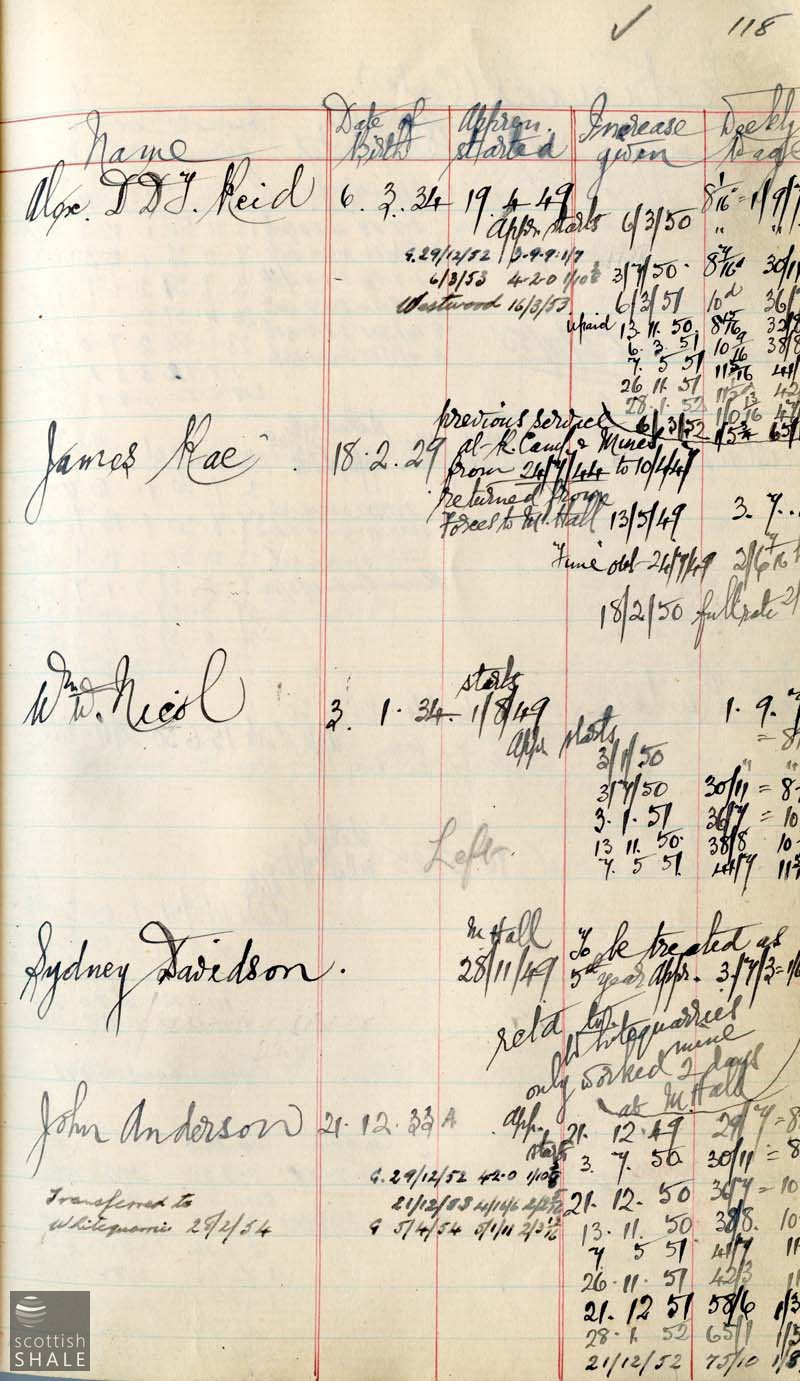 118
Name Date of Birth Appren. started Increase given Weekly Wage
Alex. D D Y. Reid 6. 3. 34 19. 4 49
Appr. starts 6/3/50
G. 29/12/52 3-9-9 1/7 3/7/50 8 7/16 30/11
6/3/53 4-2-0 6/3/51 10d 36/7
Westwood 16/3/53
13. 11. 50 32/8
6. 3. 51 10 9/16 38/8
7. 5 51 41/
26 11. 51 42
28. 1. 52
6/3/52 65/
previous service
James Rae. 18. 2. 29 at R. Camp & Mines
from 24/7/44 to 10/4/47
returned from
Forces to M. Hall 13/5/49 3. 7.
"Time" out 24/7/49 2/6 7/16
18/2/50 full rate 2/
starts
Wm W. Nicol 3. 1. 34. 1/8/49 1. 9.
Appr. starts
3/1/50
3/7/50 30/11 = 8
3. 1. 51 36/7 = 10
13 11. 50. 38/8 10
Left. 7. 5 51. 41/7 11
M. Hall To be treated as
Sydney Davidson. 28/11/49 5th year Appr. 3/7/3 = 1/6
retd to
Whitequarries
only worked 2 days
mine
at M. Hall
John Anderson 21. 12. 33 A App. starts 21. 12 49 29/7 = 8
3. 7. 50 30/11 = 8
G. 29/12/52 42-0 1/10
Transferred to 21/12/53 4/14/6 21. 12. 50 36/7 = 10
Whitequarries 28/2/54 G 5/4/54 5/1/11 13. 11. 50 38/8. 10
7 5 51 41/7 11
26. 11. 51 42/3 11
21. 12 51 58/6 1/3
28. 1. 52 65/1 1/5
21/12/52 75/10 1/8
scottish
SHALE